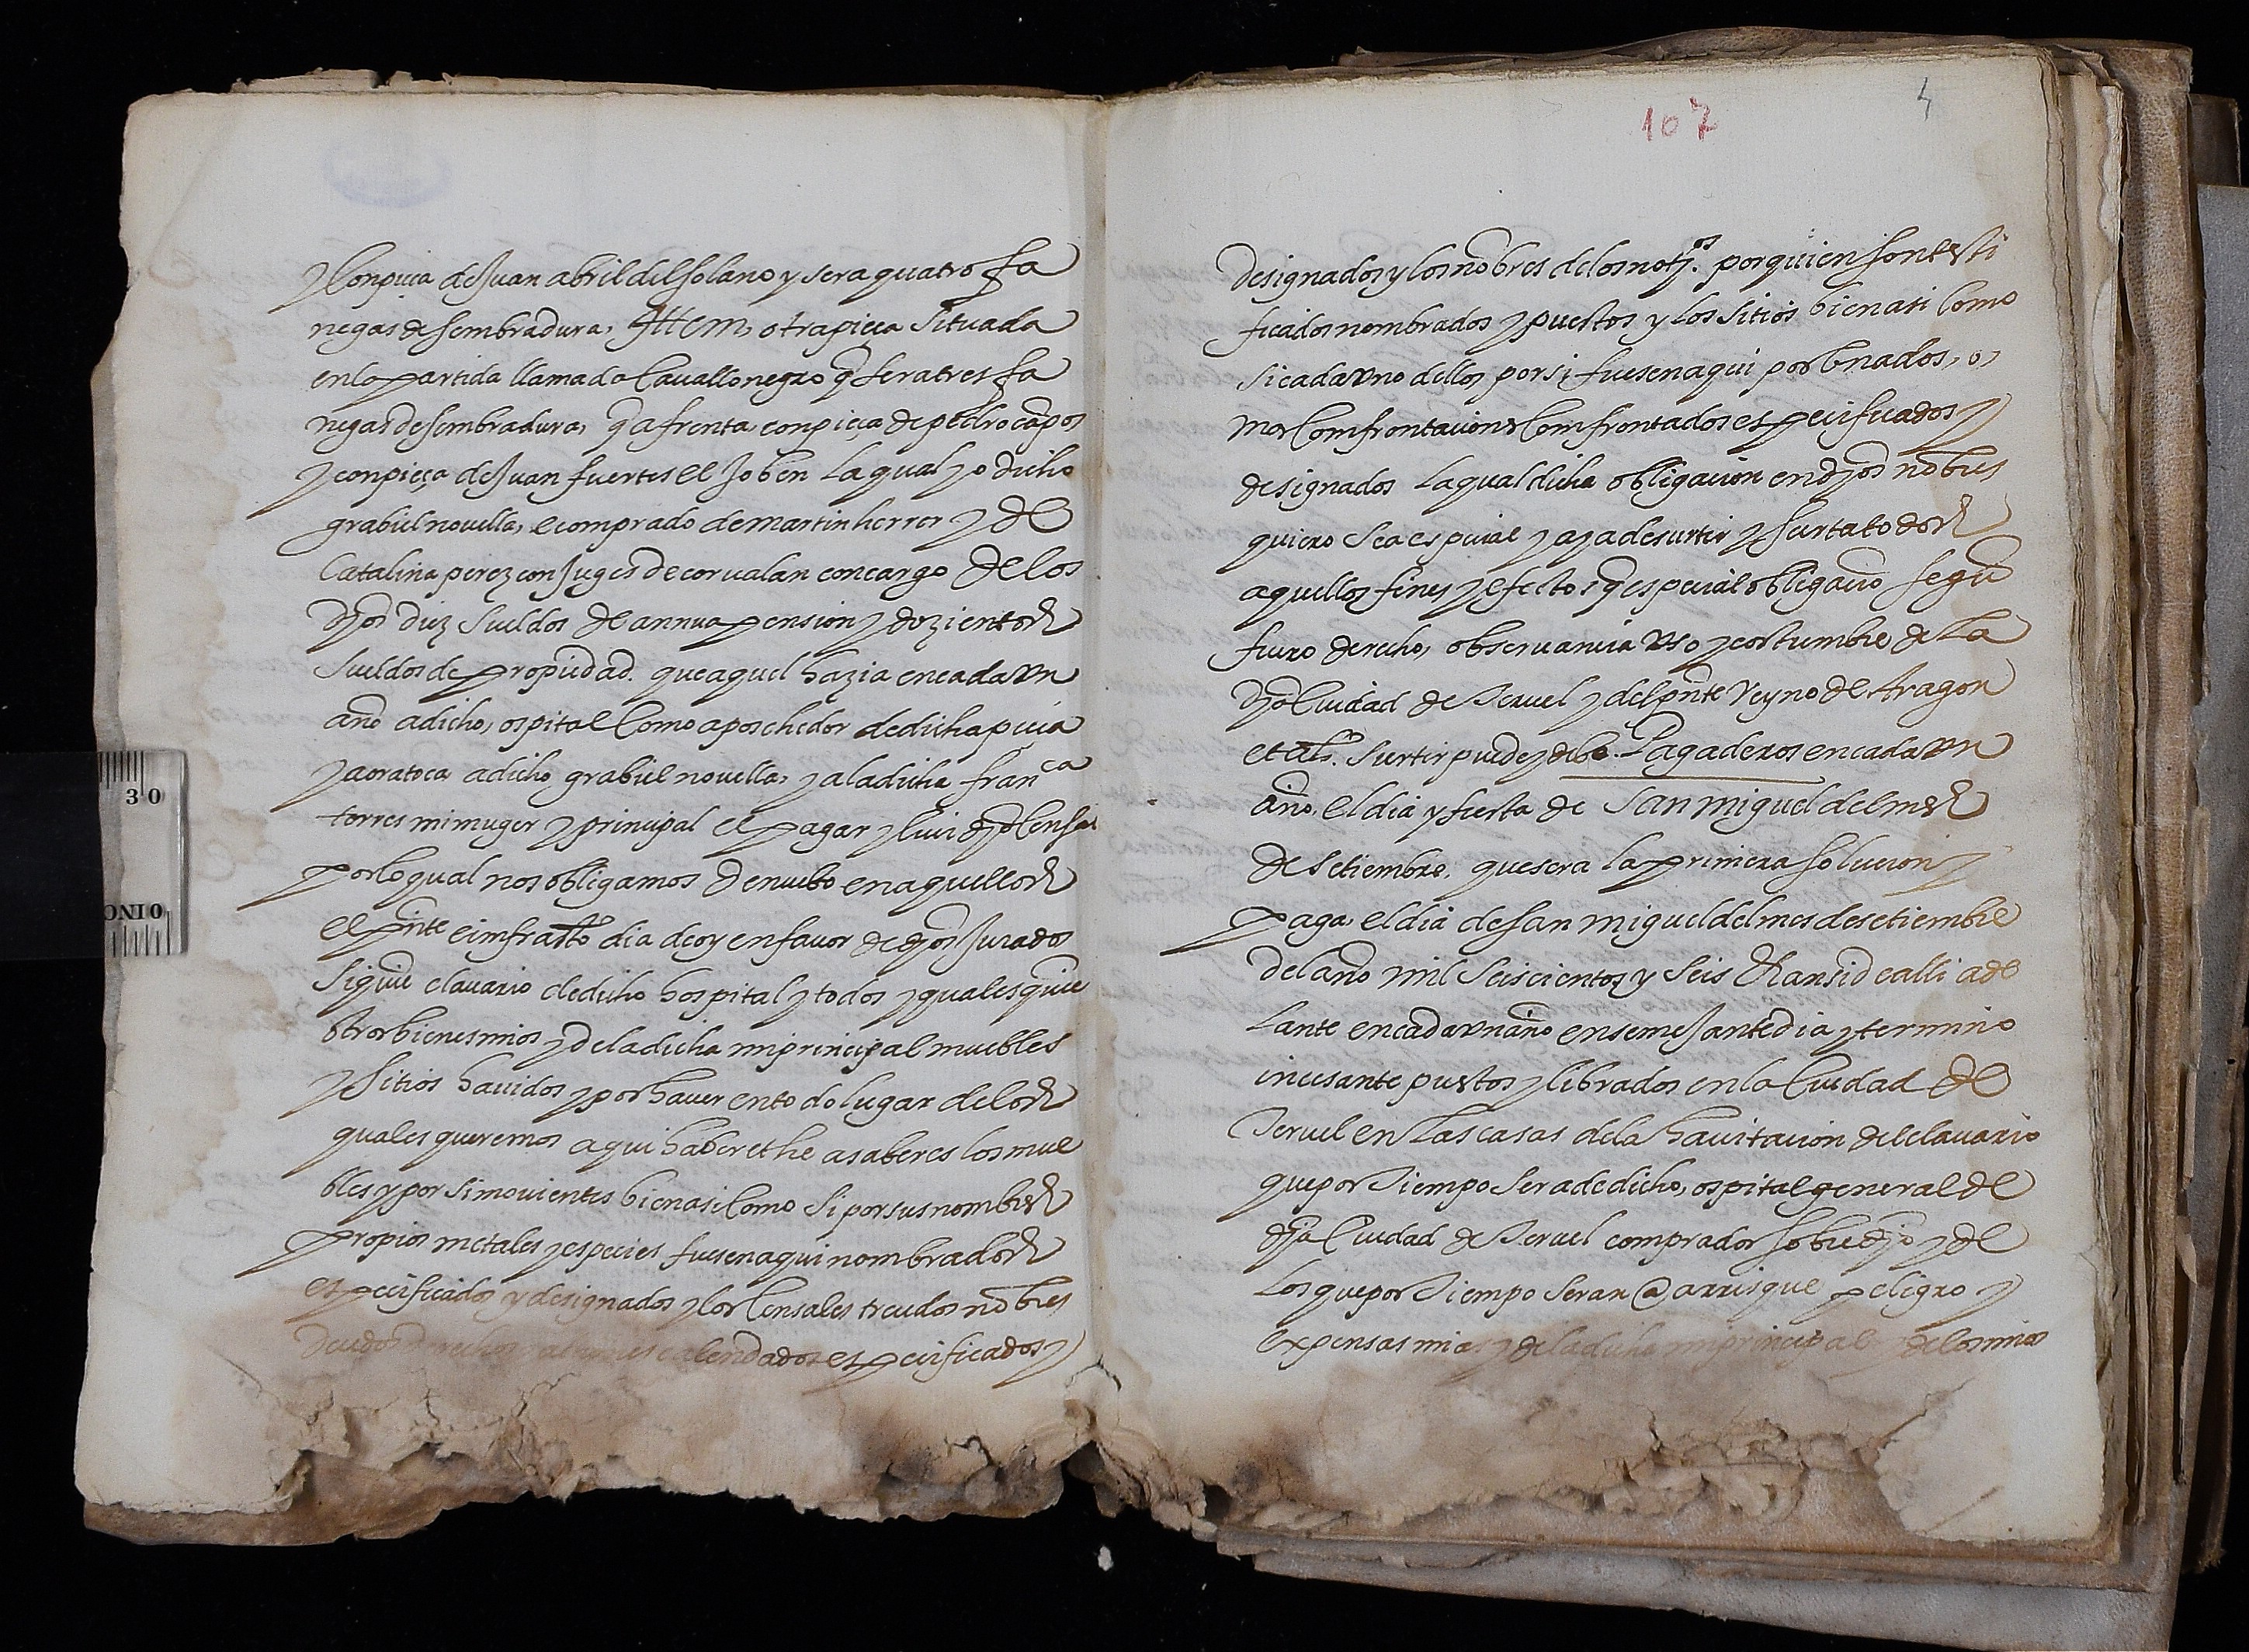 y con pieça de Juan abril del solano y sera quatro fa
negas de sembradura, Ittem, otra pieça situada
en la partida llamada Cauallo negro q̃ sera tres fa
negas de sembradura, q̃ afrenta con pieça de pedro cãpos
y con pieça de Juan fuertes el Joben la qual yo dicho
grabiel nouella, e comprado de martin herrer y de
Catalina perez conJuges de corualan con cargo de los
dhos diez sueldos de annua pension y dozientos
sueldos de propiedad. que aquel hazia en cada vn
año a dicho, ospital Como aposehedor de dicha pieça
y aora toca a dicho grabiel nouella, y a la dicha franca
torres mi muger y principal el pagar y luir dho Censal
por lo qual nos obligamos de nuebo en aquellos
el pñte e imfrasto dia de oy en fauor de dhos Jurados
siquie clauario de dicho hospital y todos y qualesquie
otros bienes mios y de la dicha mi principal muebles
y sitios hauidos y por hauer en todo lugar de los
quales queremos aqui haber ethe a saber es los mue
bles y por si mouientes bien asi Como si por sus nombres
propios metales y especies fuesen aqui nombrados
especificados y designados y los Censales treudos nõbres
deudos calendados especificados y
107
4
designados y los nõbres de los notjos. por quien son testi
ficados nombrados y puestos y los sitios bien asi Como
si cada vno dellos por si fuesen aqui por 
mas Comfrontaciones Comfrontados especificados y
designados la qual dicha obligacion en dhos nõbres
quiero sea especial y aya de surtir y surta todos
aquellos fines y efectos q̃ especial obligacio segũ
fuero derecho, obseruancia vso y costumbre de la
dha Ciudad de Teruel y del pñte Reyno de Aragon
et als. surtir puede y debe. Pagaderos en cada vn
año, el dia y fiesta de san miguel del mes
de setiembre. que sera la primera solucion y
paga el dia de san miguel del mes de setiembre
del año mil seiscientos y seis et ansi de alli ade
lante en cada vn año en semeJante dia y termino
incesante puestos y librados en la Ciudad de
Teruel en las casas de la hauitacion del clauario
que por tiempo sera de dicho, ospital general de
dha Ciudad de Teruel comprador sobredjo y de
los que por tiempo seran @ arrisque peligro y
expensas mias y de la dicha mi principal y de los mios
30